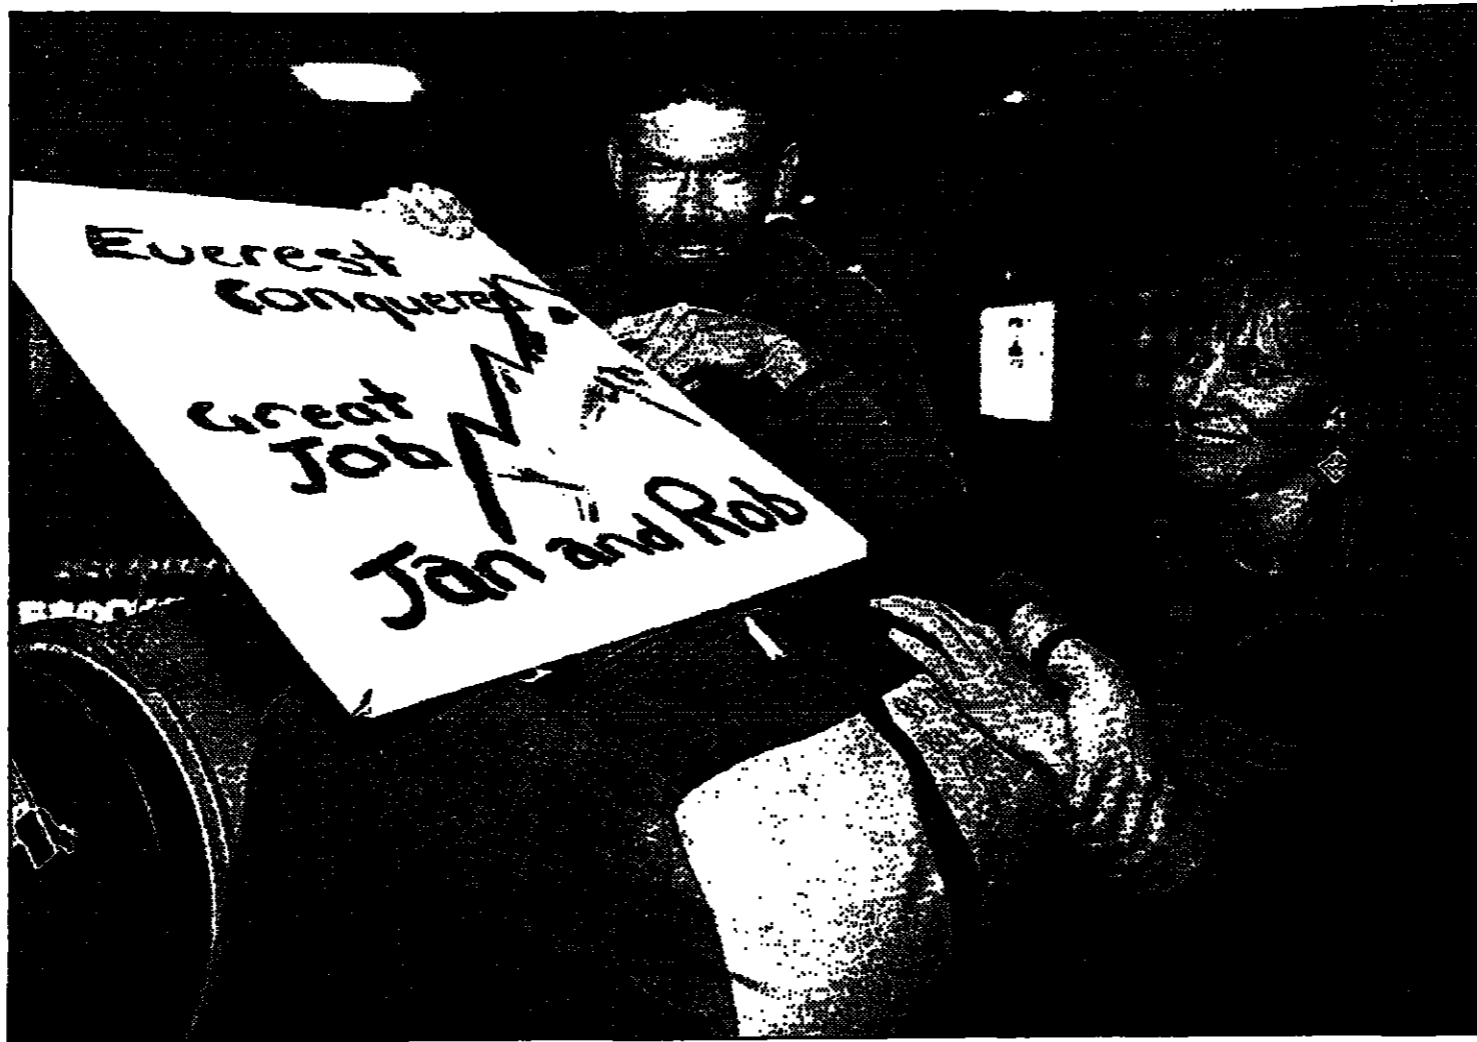 Everest
Conquered.
Great
Job
Jan and Rob